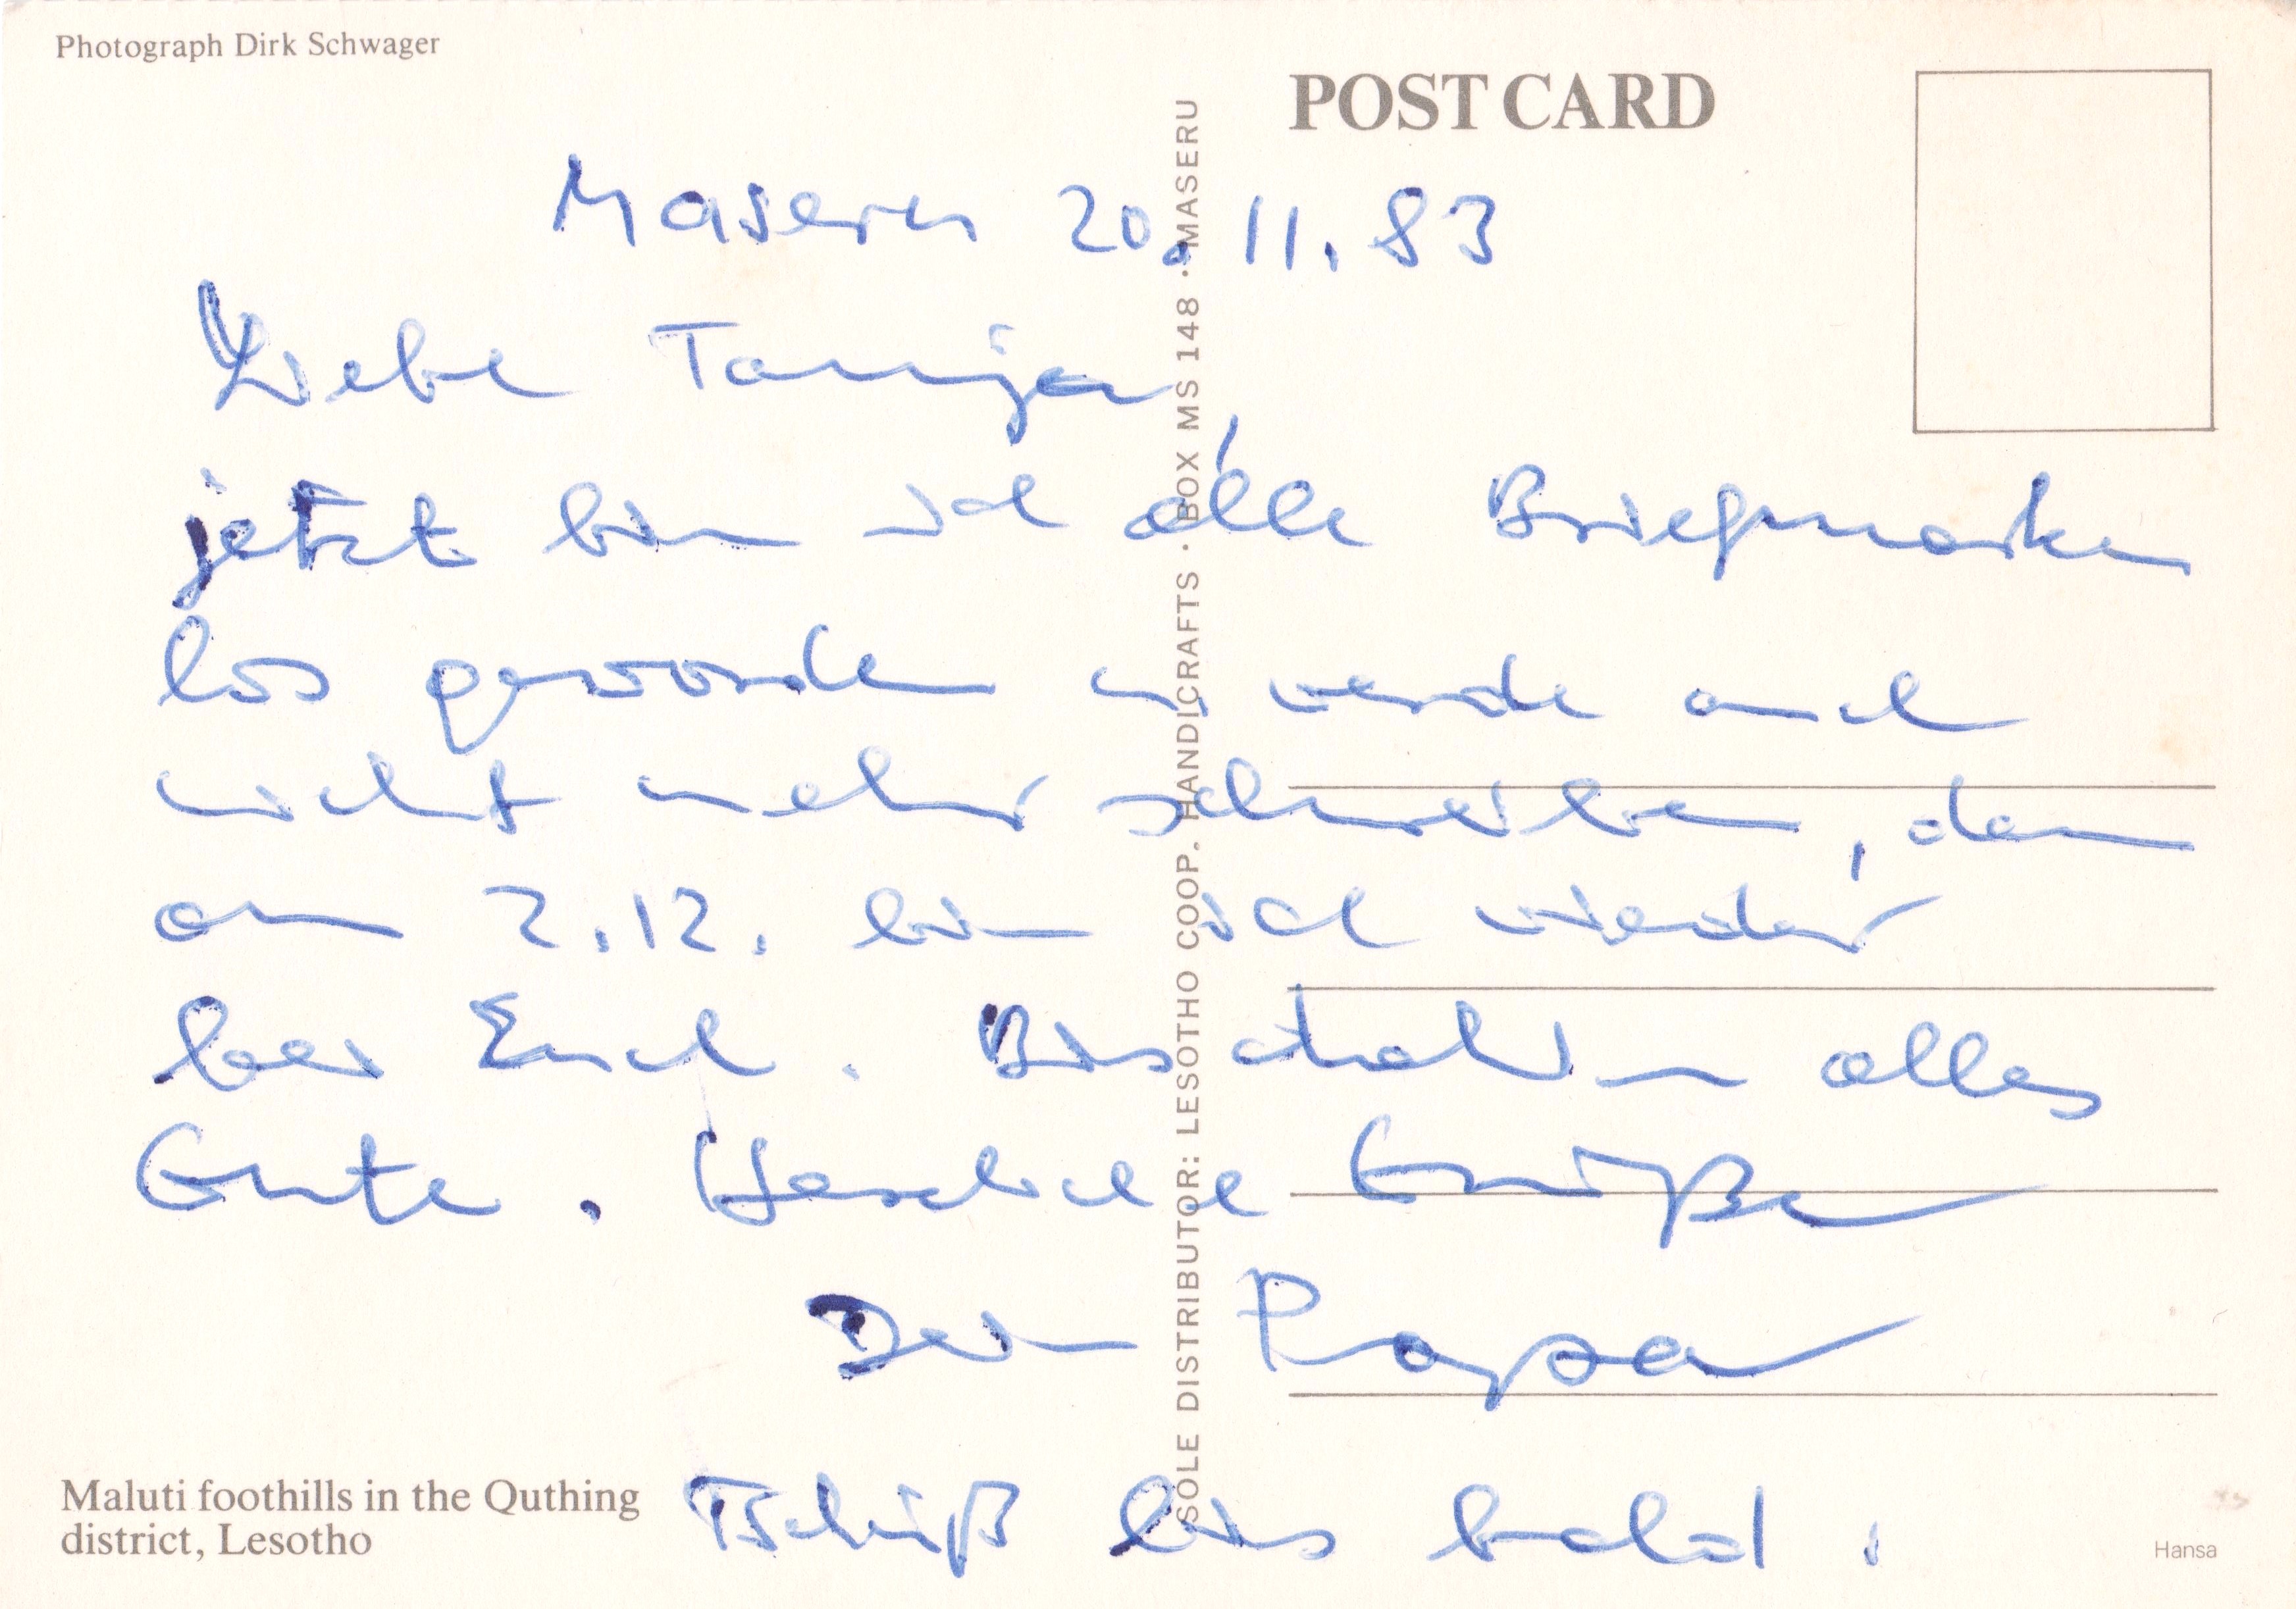 Photograph Dirk Schwager
POST CARD
Maseru 20.11.83
Liebe Tanja,
jetzt bin ich alle Briefmarken
los geworden u. werde auch
nicht mehr schreiben, denn
am 2.12. bin ich wieder
bei Euch. Bis dahin alles
Gute. Herzliche Grüße
Dein Papa
Tschüß bis bald!
Maluti foothills in the Quthing
district, Lesotho
SOLE DISTRIBUTOR: LESOTHO COOP. HANDICRAFTS · BOX MS 148 · MASERU
Hansa